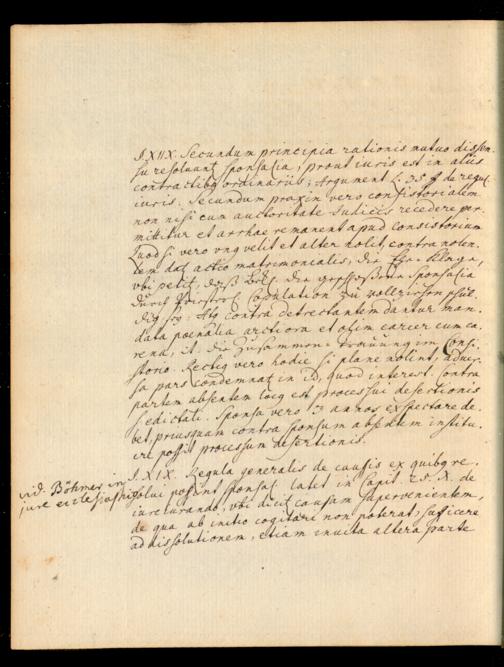 §. XIIX. Secundum principia rationis mutuo dissen-
su resolvunt Sponsalia, prout iuris est in aliis
contractibq ordinariis; Argument l. 35. ff de regul.
iuris. Secundum praxin vero consistorialem
non nisi cum auctoritate Judicis recedere per-
mittitur et arrhae remanent apud consistorium
Quod si vero vnq velit et alter nolit, contra nolen-
tem dat actio matrimonialis, die Ehe-Klage,
vbi petit, daß die geschloßene Sponsalia
durch Copulation zu vollziehen schul-
dig sey. Atq contra detrectantem dantur man-
data poenalia arctiora et olim carcer cum ca-
rena, it. die Zusammen-Trauung im Consi-
storio. Rectiq vero hodie si plane nolint, adver-
sa pars condemnat in id, quod interest. Contra
partem absentem locq est processui desertionis
s. edictali. Sponsa vero 3 annos exspectare de-
bet, priusquam contra sponsum absentem institu-
ere possit processum desertionis.
§. XIX. Regula generalis de causis ex quibq re-
vid. Böhmer in
jure ecclesiastico
solvi possint sponsal. latet in Capit. 25. X. de
iureiurando, vbi dicit causam supervenientem,
de qua ab initio cogitari non poterat, sufficere
ad dissolutionem, etiam invita altera parte